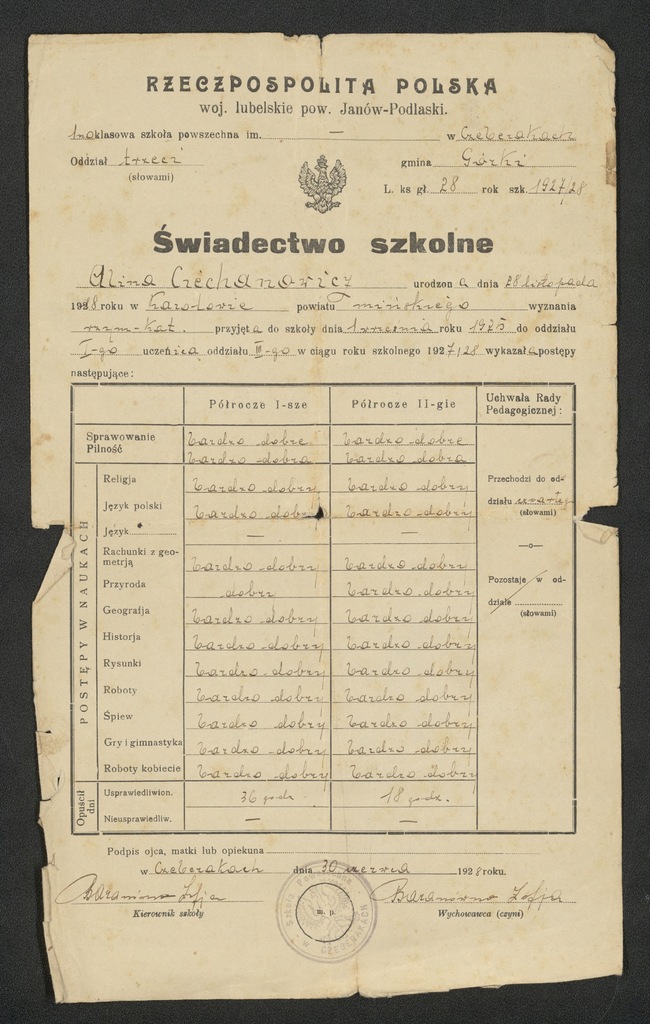 RZECZPOSPOLITA POLSKA
woj. lubelskie pow. Janów-Podlaski.
1noklasowa szkoła powszechna im. — w Czeberakach
Oddział trzeci gmina Górki
(słowami)
L. ks gł. 28 rok szk. 1927/28
Świadectwo szkolne
Alina Czechanowicz urodzona dnia 28 listopada
1918 roku w powiatu mińskiego wyznania
rzym-kat. przyjęta do szkoły dnia 1 września roku 1925 do oddziału
I-go uczenica oddziału III-go w ciągu roku szkolnego 1927/28 wykazała postępy
następujące:
Półrocze I-sze Półrocze II-gie Uchwała Rady Pedagogicznej:
Sprawowanie bardzo dobre bardzo dobre
Pilność bardzo dobra bardzo dobra
POSTĘPY W NAUKACH
Religja bardzo dobry bardzo dobry
Język polski bardzo dobry bardzo dobry
Język — —
Rachunki z geometrją bardzo dobry bardzo dobry
Przyroda dobry bardzo dobry
Geografja bardzo dobry bardzo dobry
Historja bardzo dobry bardzo dobry
Rysunki bardzo dobry bardzo dobry
Roboty bardzo dobry bardzo dobry
Śpiew bardzo dobry bardzo dobry
Gry i gimnastyka bardzo dobry bardzo dobry
Roboty kobiece bardzo dobry bardzo dobry
Opuścił dni
Usprawiedliwion. 36 godz. 18 godz.
Nieusprawiedliw. — —
Przechodzi do od-
działu czwartego
(słowami)
—o—
Pozostaje w od-
dziale
(słowami)
Podpis ojca, matki lub opiekuna
w Czeberakach dnia 30 czerwca 1928 roku.
Baranówna Zofja Baranówna Zofja
Kierownik szkoły m. p. Wychowawca (czyni)
Szkoła Powszechna w CZEBERAKACH